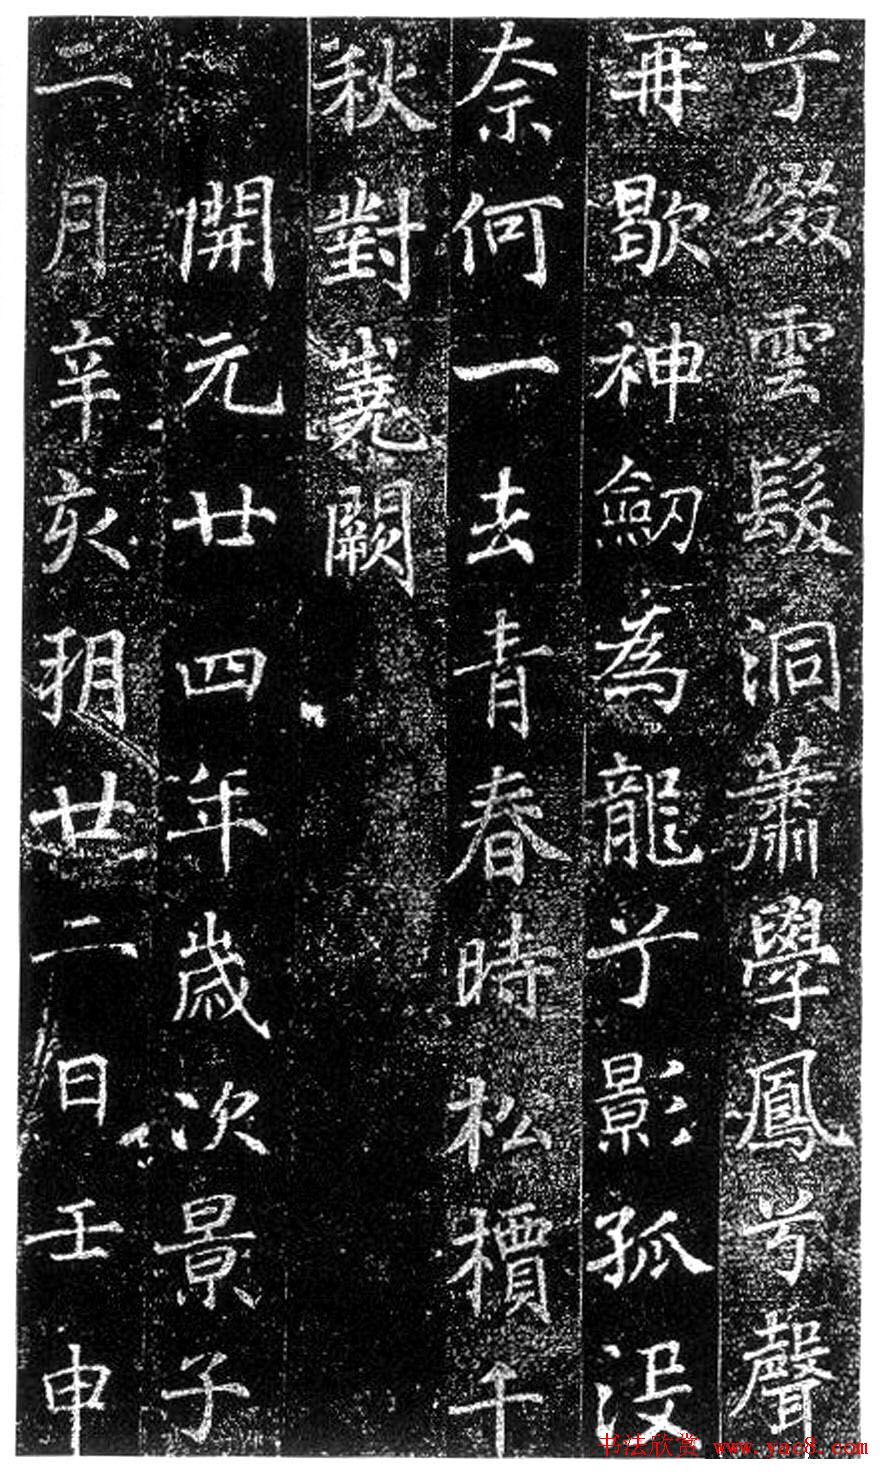 兮綴雲髮洞蕭學鳳兮聲
再歇神劔為龍兮影孤没
奈何一去青春時松檟千
秋對嶤闕
開元廿四年歲次景子
二月辛亥朔廿二日壬申
书法欣赏 www.yac8.com